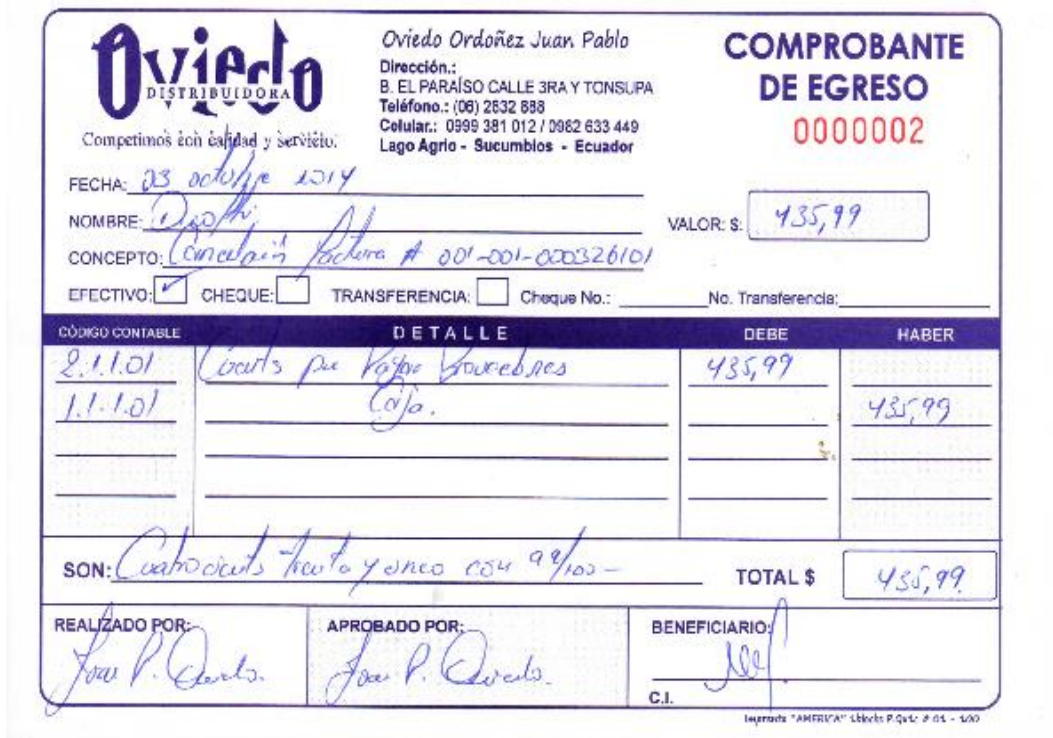 Oviedo
DISTRIBUIDORA
Competimos con calidad y servicio.
Oviedo Ordoñez Juan Pablo
Dirección.:
B. EL PARAÍSO CALLE 3RA Y TONSUPA
Teléfono.: (06) 2832 888
Celular.: 0999 381 012 / 0982 633 449
Lago Agrio - Sucumbios - Ecuador
COMPROBANTE
DE EGRESO
0000002
FECHA: 03 octubre 2014
NOMBRE:
VALOR: $: 435,99
CONCEPTO: Cancelación factura # 001-001-000326101
EFECTIVO: CHEQUE: TRANSFERENCIA: Cheque No.: No. Transferencia:
CÓDIGO CONTABLE DETALLE DEBE HABER
2.1.1.01 Cuentas por Pagar Proveedores 435,99
1.1.1.01 Caja. 435,99
SON: Cuatrocientos treinta y cinco con 99/100- TOTAL $ 435,99
REALIZADO POR: APROBADO POR: BENEFICIARIO:
Juan P. Oviedo. Juan P. Oviedo.
C.I.
Imprenta "AMERICA"